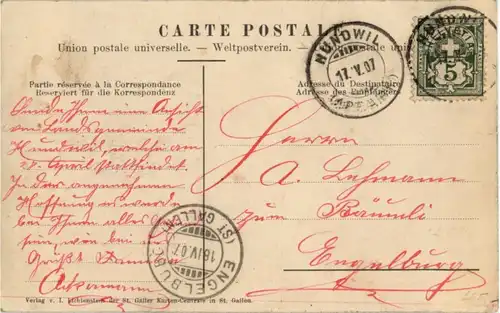 CARTE POSTALE
Union postale universelle. — Weltpostverein. — postale universelle
HUNDWIL
17.V.07
(APPENZELL)
5
Partie réservée à la Correspondance
Reserviert für die Korrespondenz
Adresse du Destinataire
Adresse des Empfängers
Sende Ihnen eine Ansicht
von Landsgemeinde
Hundwil, welche am
28. April stattfindet.
In der angenehmen
Hoffnung es werde
bei Ihnen alles
sein, wie bei
Grüsst
Ackermann
Herrn
A. Lehmann
zum Bäumli
Engelburg
ENGELBURG
(ST. GALLEN)
18.IV.07
Verlag v. I. der St. Galler Karten-Centrale in St. Gallen.